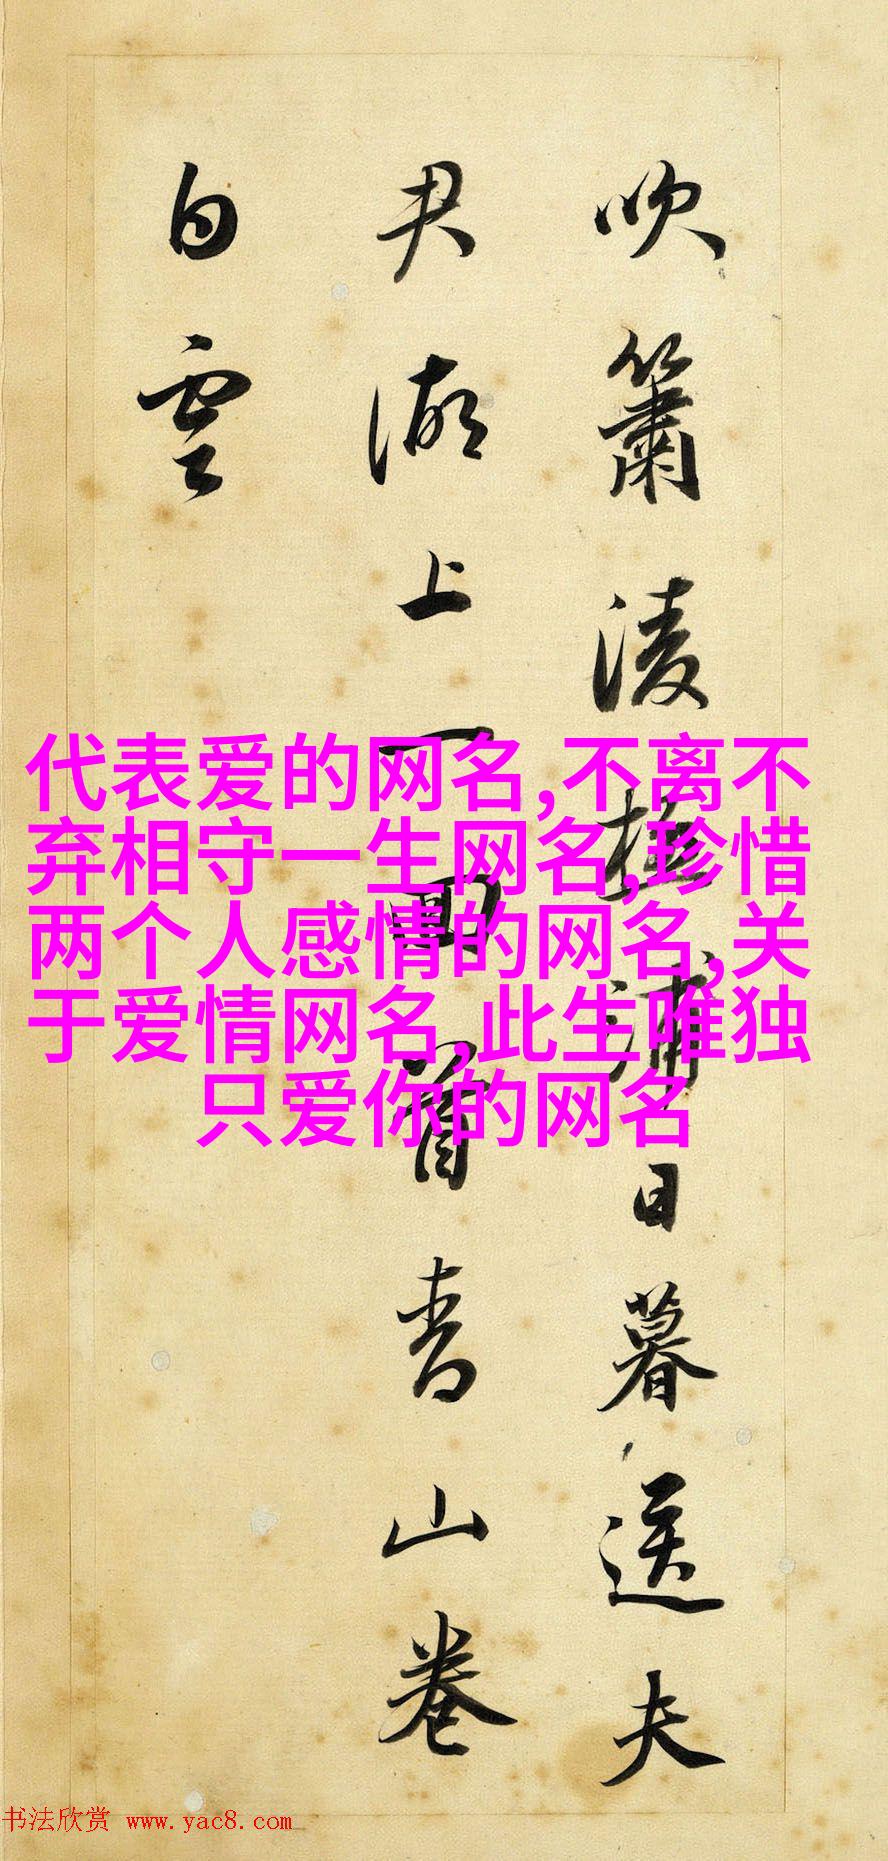 吹簫凌極浦日暮送夫
君湖上一回首青山卷
白雲
代表爱的网名,不离不
弃相守一生网名,珍惜
两个人感情的网名,关
于爱情网名,此生唯独
只爱你的网名
书法欣赏 www.yac8.com